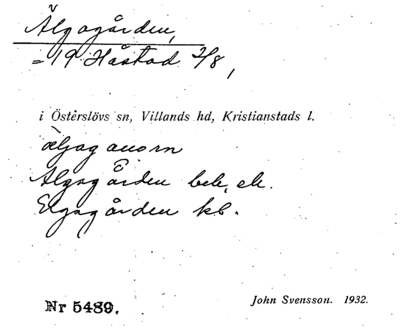 Älgagården,
= 19 Håstad 2/8,
i Österslövs sn, Villands hd, Kristianstads l.
Älgagården beb, ek.
Elgagården kb.
Nr 5489.
John Svensson. 1932.